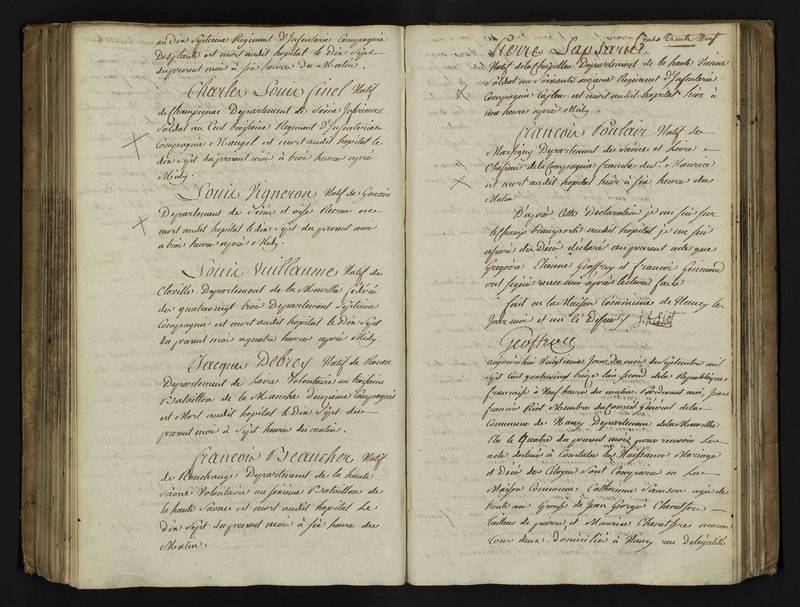 au dix Septieme Regiment d'Infanterie Compagnie
est mort audit hopital le dix Sept
du present mois à six heure du Matin
Charles Louis Sinel Natif
de Champignac Departement de Seine Inferieure
Soldat au Cent troisieme Regiment d'Infanterie
Compagnie Maugel est mort audit hopital le
dix Sept du present mois à trois heure apres
Midy.
Louis Vigneron Natif de
Departement de Seine et oise
mort audit hopital le dix Sept du present mois
à trois heure apres Midy.
Louis Guillaume Natif de
Cloville Departement de la Meurthe
des quatre vingt trois Departement Septieme
Compagnie est mort audit hopital le dix Sept
du present mois a quatre heure apres Midy.
Jacques Debrey Natif de Rouen
Departement de Volontaire au
Bataillon de la Manche Compagnie
est Mort audit hopital le dix Sept du
present mois à Sept heure du matin.
francois Beaucher Natif
de Departement de la haute
Saone Volontaire au sixieme Bataillon de
la haute Saone est mort audit hopital Le
dix Sept du present mois à six heure du
Matin.
Cent Trente Neuf
Pierre
Natif de la Chapelle Departement de la haute Vienne
Soldat au Soixante onzieme Regiment d'Infanterie
Compagnie est mort audit hopital hier à
une heure apres Midy.
francois Poulair Natif de
Marsigny Departement de Saone et Loire
Chasseur de la Compagnie franche de St Maurice
est mort audit hopital hier à six heure du
Matin
D'après Cette Declaration je me suis sur
le champ transporté audit hopital je me suis
assuré des Décè declaré au present acte que
Gregoire Etienne Geoffroy et francois
ont signé avec moi après lecture faite
fait en la Maison Commune de Nancy les
Jour mois et an ci Dessus
Geoffroy
aujourdhui vingtieme Jour du mois de Septembre mil
sept Cent quatre vingt treize l'an second de la Republique
francaise à Neuf heures du matin Pardevant moi, Jean
francois Riot Membre du Conseil Général de la
Commune de Nancy Departement de la Meurthe
Elu le quatre du present mois pour recevoir Les
acte destiné à Constater les Naissance Mariage
et Décè des Citoyens Sont Comparus en La
Maison Commune Catherine Samson agée de
trente ans Epouse de Jean George
tailleur de pierre, et Maurice macon
tous deux domicilié à Nancy rue d'égalité